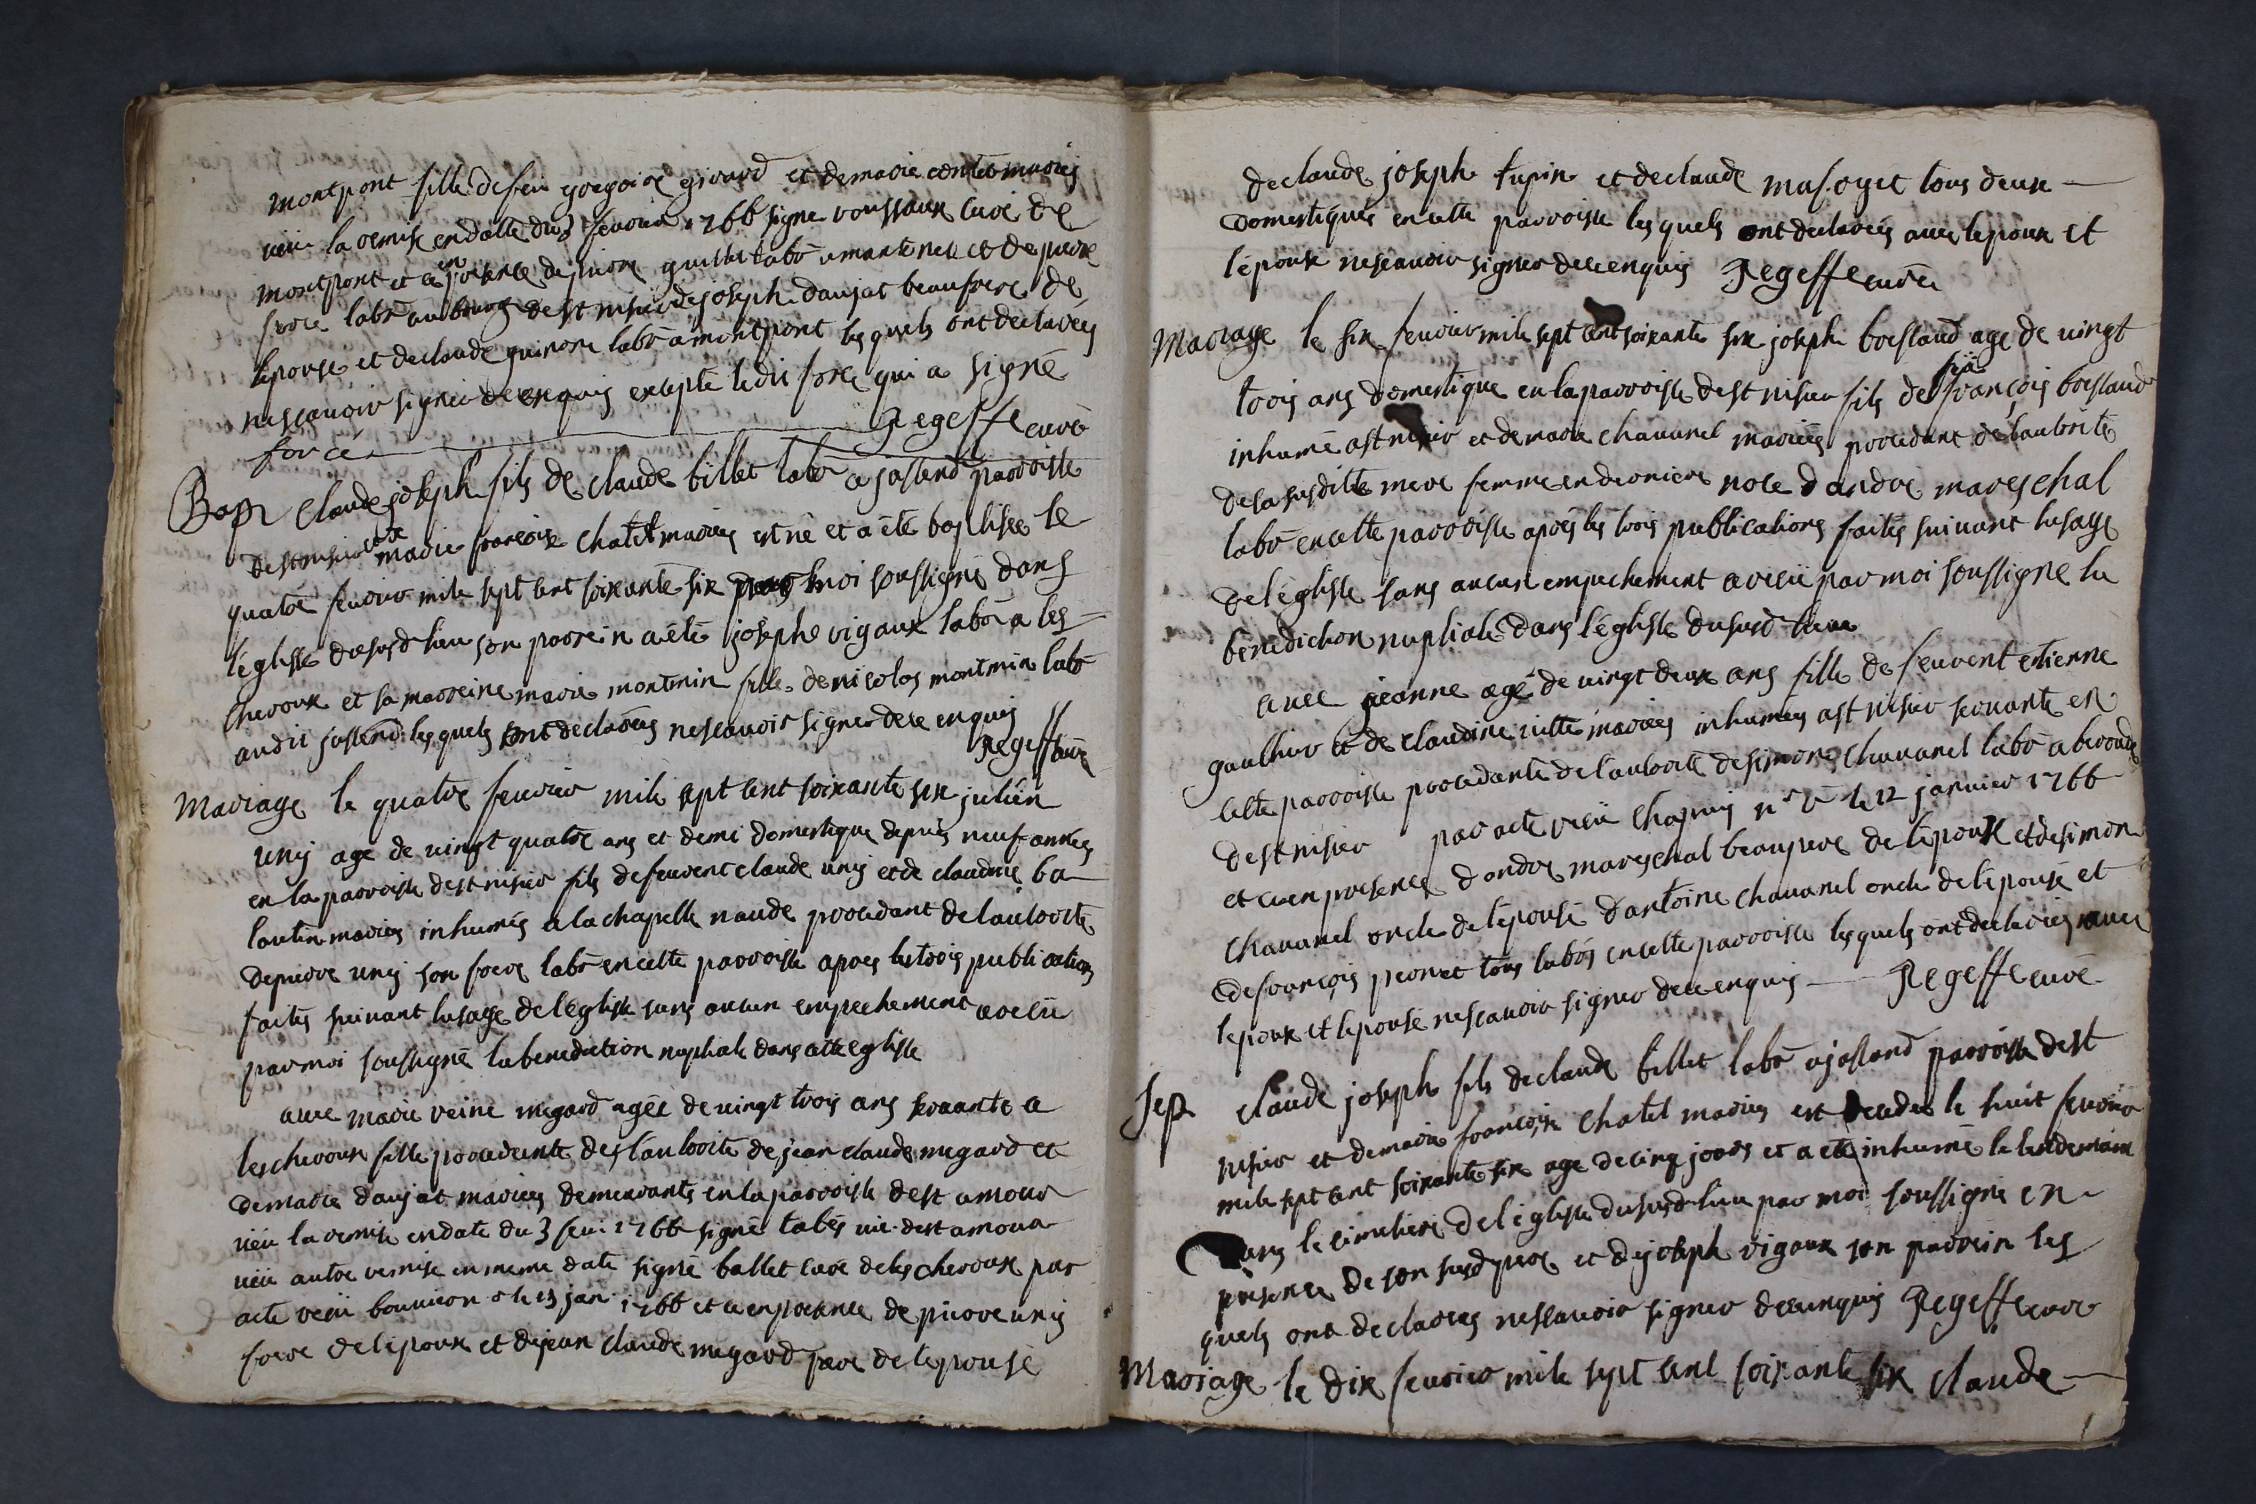 montpont fille de feu gregoire girard et de marie contet mariés
veüe la remise en datte du 3 fevrier 1766 signe roussaux curé de
montpont et ce en presence de pierre guillet labr a mantenet et de pierre
force labr au bourg de st nisier de joseph daujat beaufrere de
lepouse et de claude guinon labr a montpont les quels ont declarés
nescavoir signer de ce enquis excepté ledit forcé qui a signé
forcé Regeffe curé
Bap claude joseph fils de claude billet labr a jassend parroisse
de st nisier et de marie francoise chatel mariés est né et a été baptisée le
quatre fevrier mile sept cent soixante six par moi soussigné dans
léglise du susd lieu son parrein a été joseph vigaux labr a les
cheroux et sa marreine marie montmin fille de nicolas montmin labr
audit jassend les quels ont declarés nescavoir signer de ce enquis
Regeffe curé
Mariage le quatre fevrier mile sept cent soixante six julien
uny age de vingt quatre ans et demi domestique depuis neuf années
en la parroisse de st nisier fils de feuvent claude uny et de claudine ba
lantin mariés inhumés a la chapelle naude procedant de lautorité
de pierre uny son frere labr en cette parroisse apres les trois publications
faites suivant lusage de leglise sans aucun empechement a reçü
par moi soussigné la benediction nuptiale dans cette eglise
avec marie reine megard agée de vingt trois ans servante a
les cheroux fille procedante de lautorité de jean claude megard et
de marie daujat mariés demeurants en la parroisse de st amour
veüe la remise en date du 3 fevr 1766 signé tabés vic de st amour
veüe autre remise en meme date signé ballet curé de les cheroux par
acte recü bouvieron le 13 jan 1766 et ce en presence de pierre uny
frere de lepoux et de jean claude megard pere de lepouse
de claude joseph tupin et de claude musoget tous deux
domestiques en cette parroisse les quels ont declarés avec lepoux et
lépouse nescavoir signer de ce enquis Regeffe curé
Mariage le six fevrier mile sept cent soixante six joseph boessaud age de vingt
trois ans domestique en la parroisse de st nisier fils de feu françois boessaud
inhumé a st nisier et de marie chavanel mariés procedant de lautorité
de sa susditte mere femme en derniere noce dandré mareschal
labr en cette parroisse après les trois publications faites suivant lusage
de léglise sans aucun empechement a reçü par moi soussigne la
bénédiction nuptiale dans léglise du susd lieu
avec jeanne agé de vingt deux ans fille de feuvent etienne
gauthier et de claudine vitte mariés inhumés a st nisier servante en
cette parroisse procedante de lautorité de simon chavanel labr a
de st nisier par acte recü chapuis nre le 12 janvier 1766
et ce en presence dandré mareschal beaupere de lépoux et de simon
chavanel oncle de lépouse dantoine chavanel oncle de lépouse et
de françois peonet tous labrs en cette parroisse les quels ont declarés avec
lepoux et lepouse nescavoir signer de ce enquis Regeffe curé
Sep claude joseph fils de claude billet labr a jassend parroisse de st
nisier et de marie françoise chatel mariés est decedé le huit fevrier
mile sept cent soixante six age de cinq jours et a été inhumé le lendemain
dans le cimetiere de l église du susd lieu par moi soussigné en
présence de son susd pere et de joseph vigaux son parrein les
quels ont declarés nescavoir signer de ce enquis Regeffe curé
Mariage le dix fevrier mile sept cent soixante six claude